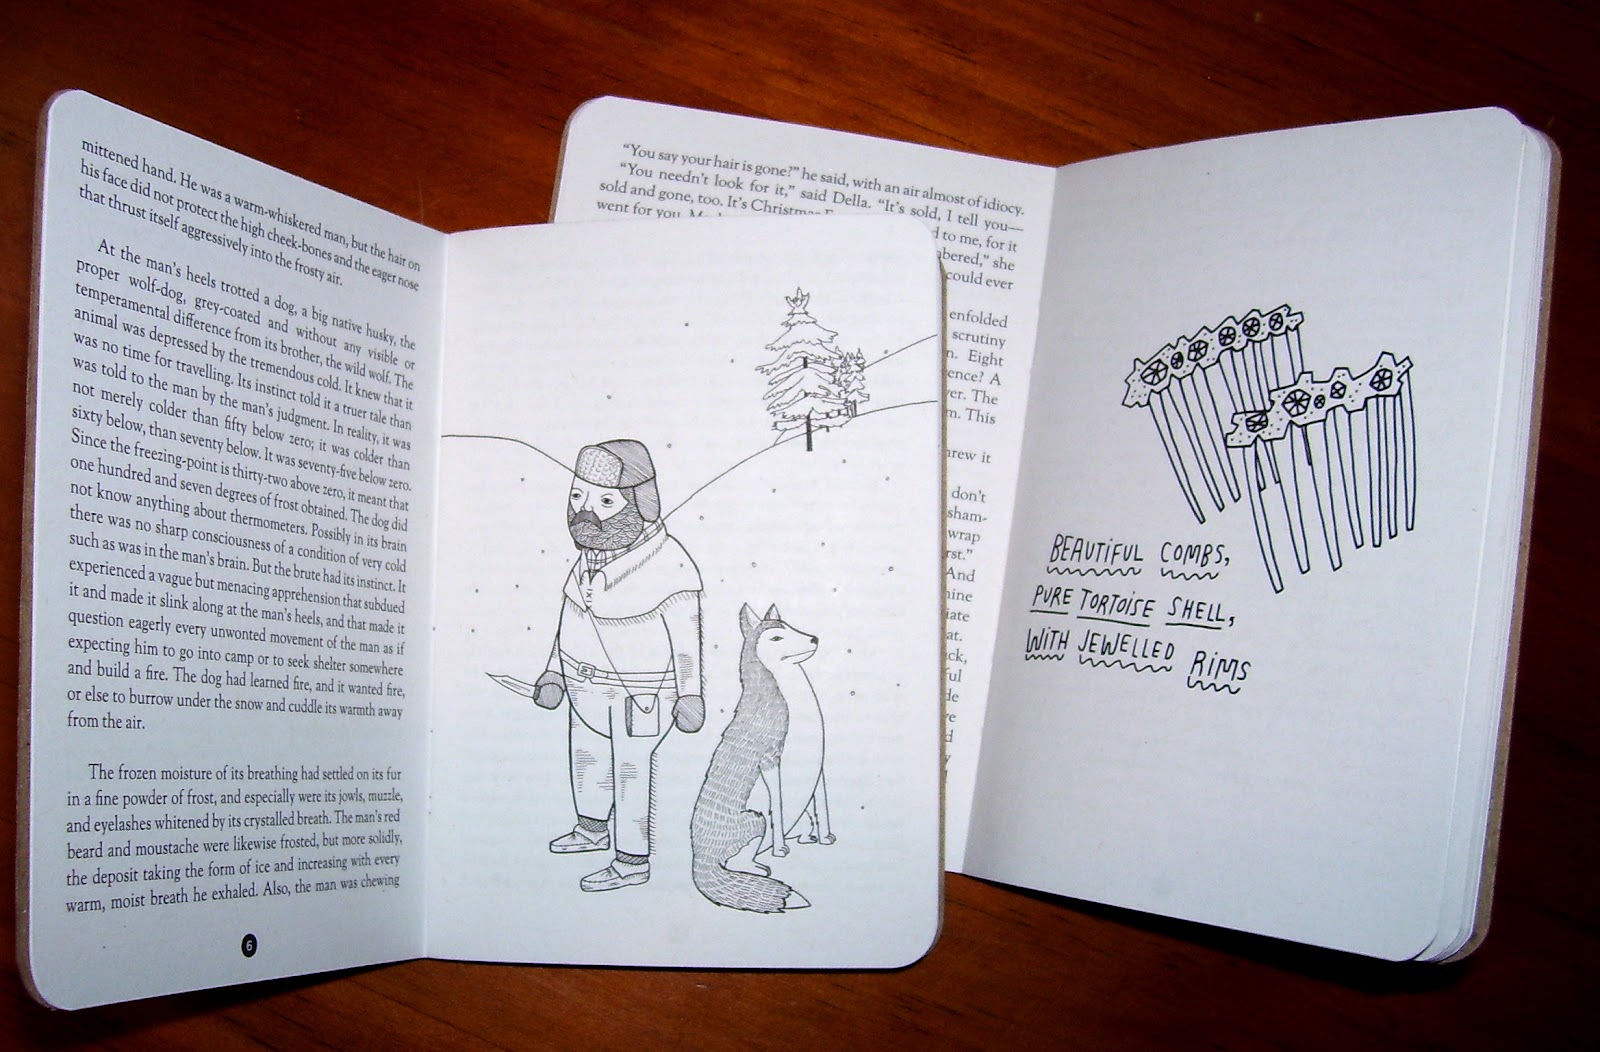 mittened hand. He was a warm-whiskered man, but the hair on
his face did not protect the high cheek-bones and the eager nose
that thrust itself aggressively into the frosty air.
At the man's heels trotted a dog, a big native husky, the
proper wolf-dog, grey-coated and without any visible or
temperamental difference from its brother, the wild wolf. The
animal was depressed by the tremendous cold. It knew that it
was no time for travelling. Its instinct told it a truer tale than
was told to the man by the man's judgment. In reality, it was
not merely colder than fifty below zero; it was colder than
sixty below, than seventy below. It was seventy-five below zero.
Since the freezing-point is thirty-two above zero, it meant that
one hundred and seven degrees of frost obtained. The dog did
not know anything about thermometers. Possibly in its brain
there was no sharp consciousness of a condition of very cold
such as was in the man's brain. But the brute had its instinct. It
experienced a vague but menacing apprehension that subdued
it and made it slink along at the man's heels, and that made it
question eagerly every unwonted movement of the man as if
expecting him to go into camp or to seek shelter somewhere
and build a fire. The dog had learned fire, and it wanted fire,
or else to burrow under the snow and cuddle its warmth away
from the air.
The frozen moisture of its breathing had settled on its fur
in a fine powder of frost, and especially were its jowls, muzzle,
and eyelashes whitened by its crystalled breath. The man's red
beard and moustache were likewise frosted, but more solidly,
the deposit taking the form of ice and increasing with every
warm, moist breath he exhaled. Also, the man was chewing
6
"You say your hair is gone?" he said, with an air almost of idiocy.
"You needn't look for it," said Della. "It's sold, I tell you—
sold and gone, too. It's Christmas
went for you.
to me, for it
she
could ever
enfolded
scrutiny
Eight
A
The
This
it
don't
wrap
And
BEAUTIFUL COMBS,
PURE TORTOISE SHELL,
WITH JEWELLED RIMS